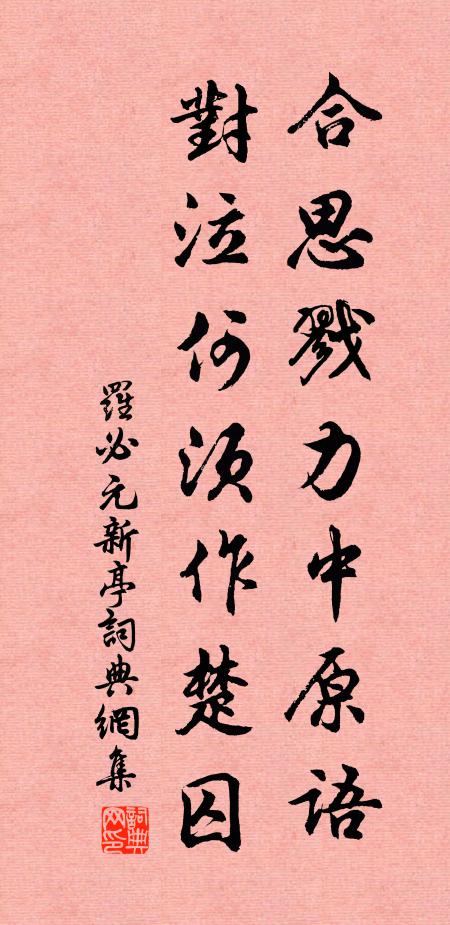 合思戮力中原語
對泣何須作楚囚
羅必元新亭詞典網集
詞典网印